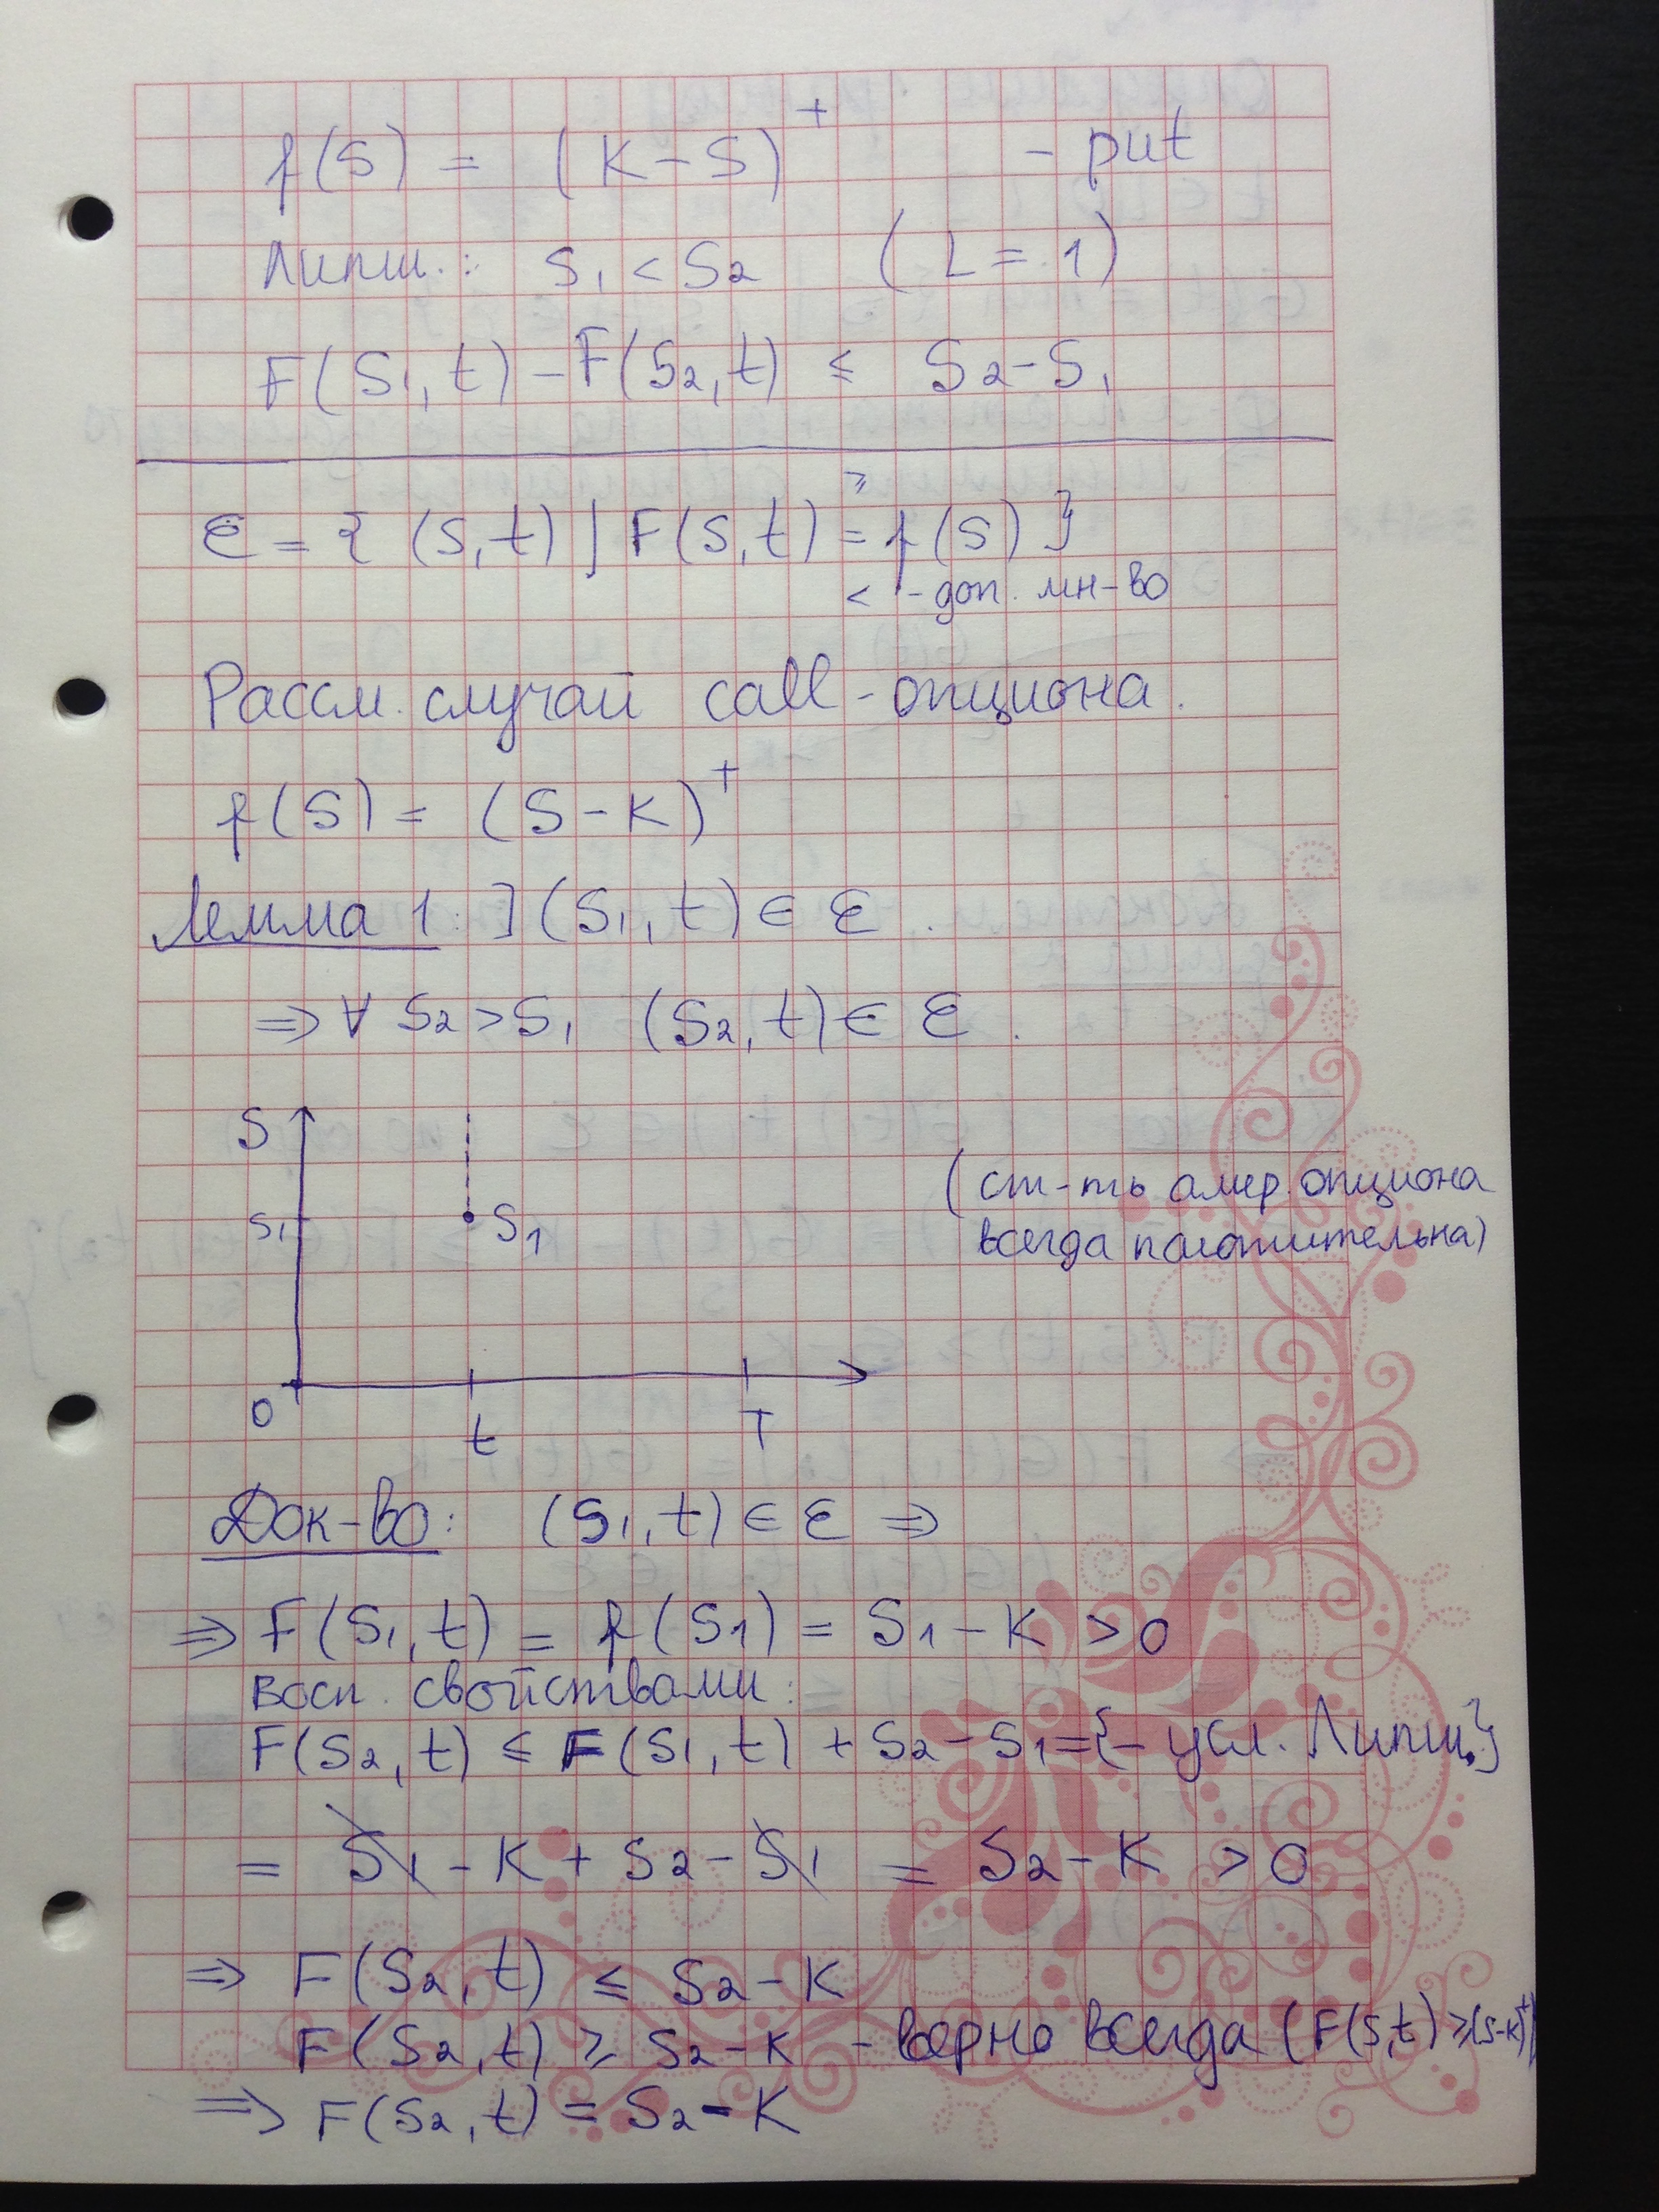 f(S) = (K-S)⁺ - put
Липш.: S₁ < S₂ (L = 1)
F(S₁, t) - F(S₂, t) ≤ S₂ - S₁
≥
Ɛ = { (S, t) ⌋ F(S, t) = f(S) }
< - доп. мн-во
Рассм. случай call-опциона.
f(S) = (S - K)⁺
Лемма 1: ] (S₁, t) ∈ Ɛ.
⇒ ∀ S₂ > S₁ (S₂, t) ∈ Ɛ.
S
S₁
S₁
(ст-ть амер. опциона
всегда положительна)
0
t
T
Док-во: (S₁, t) ∈ Ɛ ⇒
⇒ F(S₁, t) = f(S₁) = S₁ - K > 0
восп. свойствами:
F(S₂, t) ≤ F(S₁, t) + S₂ - S₁ = {- усл. Липш.}
= S₁ - K + S₂ - S₁ = S₂ - K > 0
⇒ F(S₂, t) ≤ S₂ - K
F(S₂, t) ≥ S₂ - K - верно всегда (F(S,t) ≥ (S-K)⁺)
⇒ F(S₂, t) = S₂ - K